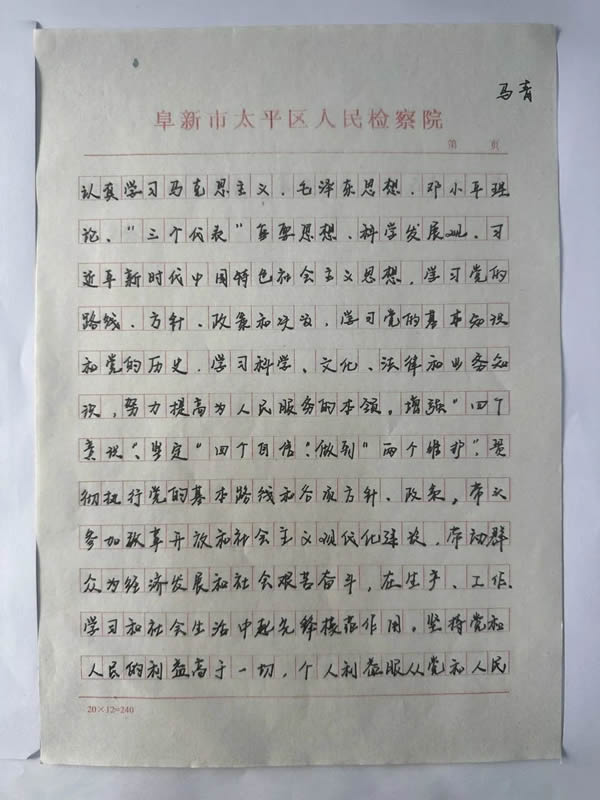 马青
阜新市太平区人民检察院
第 页
认真学习马克思主义、毛泽东思想、邓小平理
论、“三个代表”重要思想、科学发展观、习
近平新时代中国特色社会主义思想，学习党的
路线、方针、政策和决议，学习党的基本知识
和党的历史，学习科学、文化、法律和业务知
识，努力提高为人民服务的本领。增强“四个
意识”、坚定“四个自信”、做到“两个维护”，贯
彻执行党的基本路线和各项方针、政策，带头
参加改革开放和社会主义现代化建设，带动群
众为经济发展和社会艰苦奋斗，在生产、工作、
学习和社会生活中起先锋模范作用。坚持党和
人民的利益高于一切，个人利益服从党和人民
20×12=240